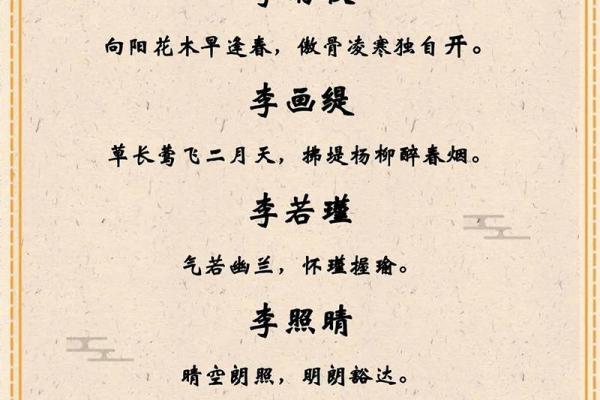 向阳花木早逢春，傲骨凌寒独自开。
李画缇
草长莺飞二月天，拂堤杨柳醉春烟。
李若瑾
气若幽兰，怀瑾握瑜。
李照晴
晴空朗照，明朗豁达。